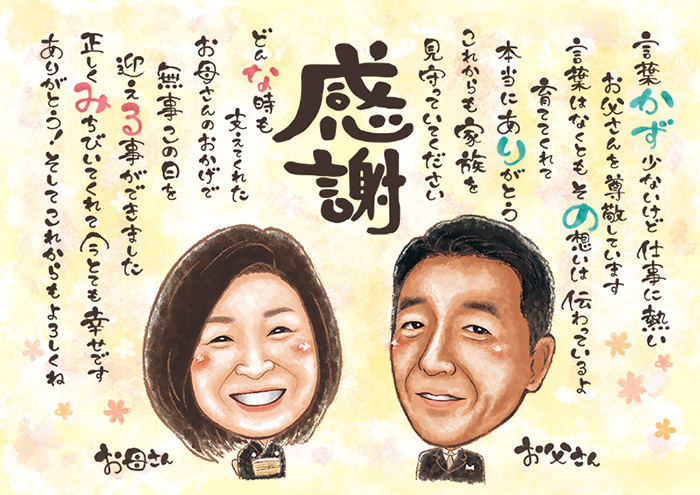 言葉かず少ないけど仕事に熱い
お父さんを尊敬しています
言葉はなくともその想いは伝わっているよ
育ててくれて
本当にありがとう
これからも家族を
見守っていてください
感謝
どんな時も
支えてくれた
お母さんのおかげで
無事この日を
迎える事ができました
正しくみちびいてくれて今とても幸せです
ありがとう!そしてこれからもよろしくね
お母さん
お父さん